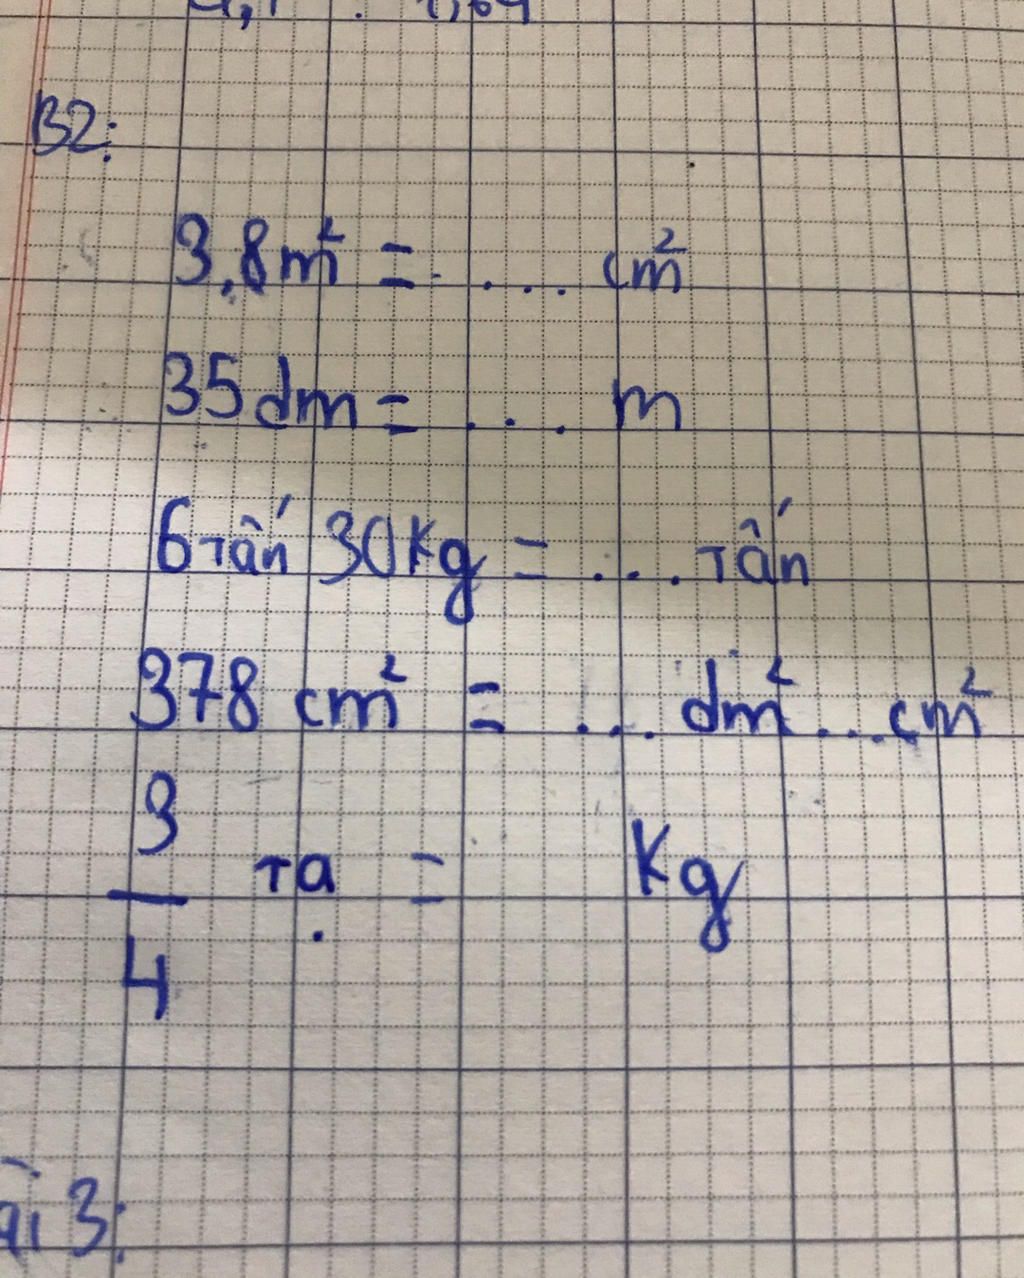 B2:
3,8m² = .... cm²
35dm = ... m
6 tấn 30Kg = .... tấn
378 cm² = ... dm² ... cm²
3/4 tạ = Kg
3: